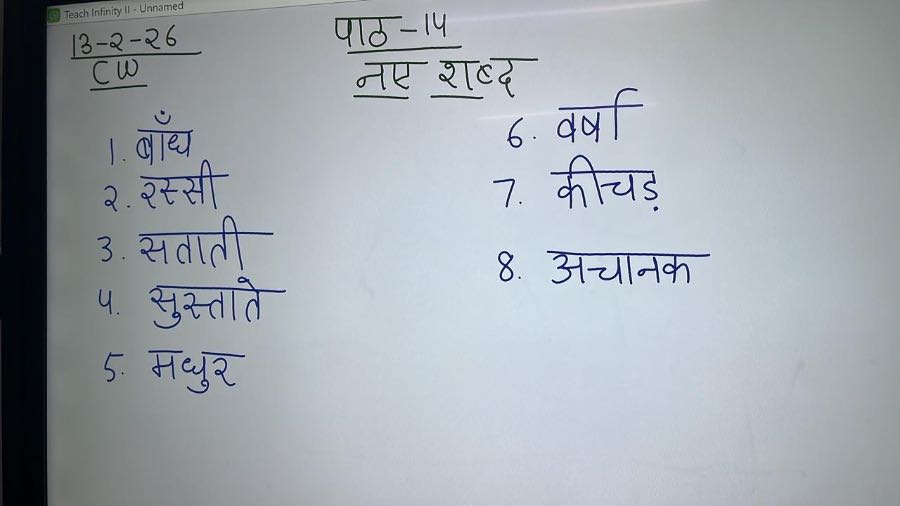 Teach Infinity II - Unnamed
13-2-26
CW
पाठ -14
नए शब्द
1. बाँध
2. रस्सी
3. सताती
4. सुस्ताते
5. मधुर
6. वर्षा
7. कीचड़
8. अचानक